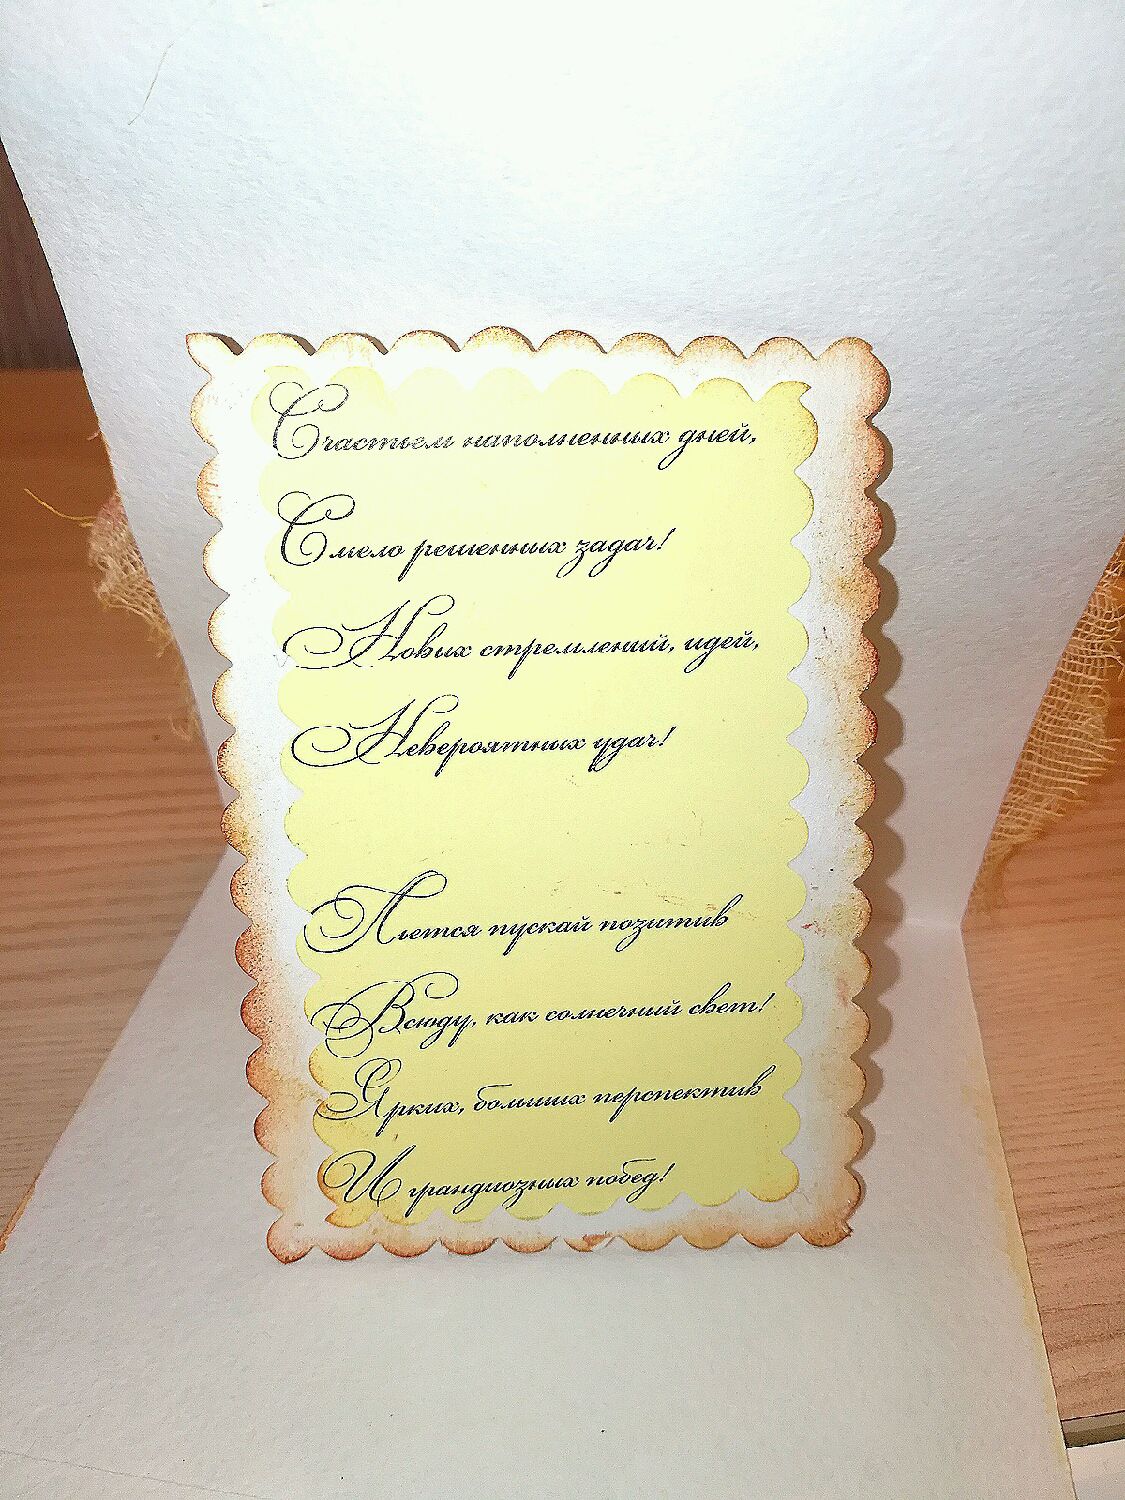 Счастьем наполненных дней,
Смело решенных задач!
Новых стремлений, идей,
Невероятных удач!
Льется пускай позитив
Всюду, как солнечный свет!
Ярких, больших перспектив
И грандиозных побед!